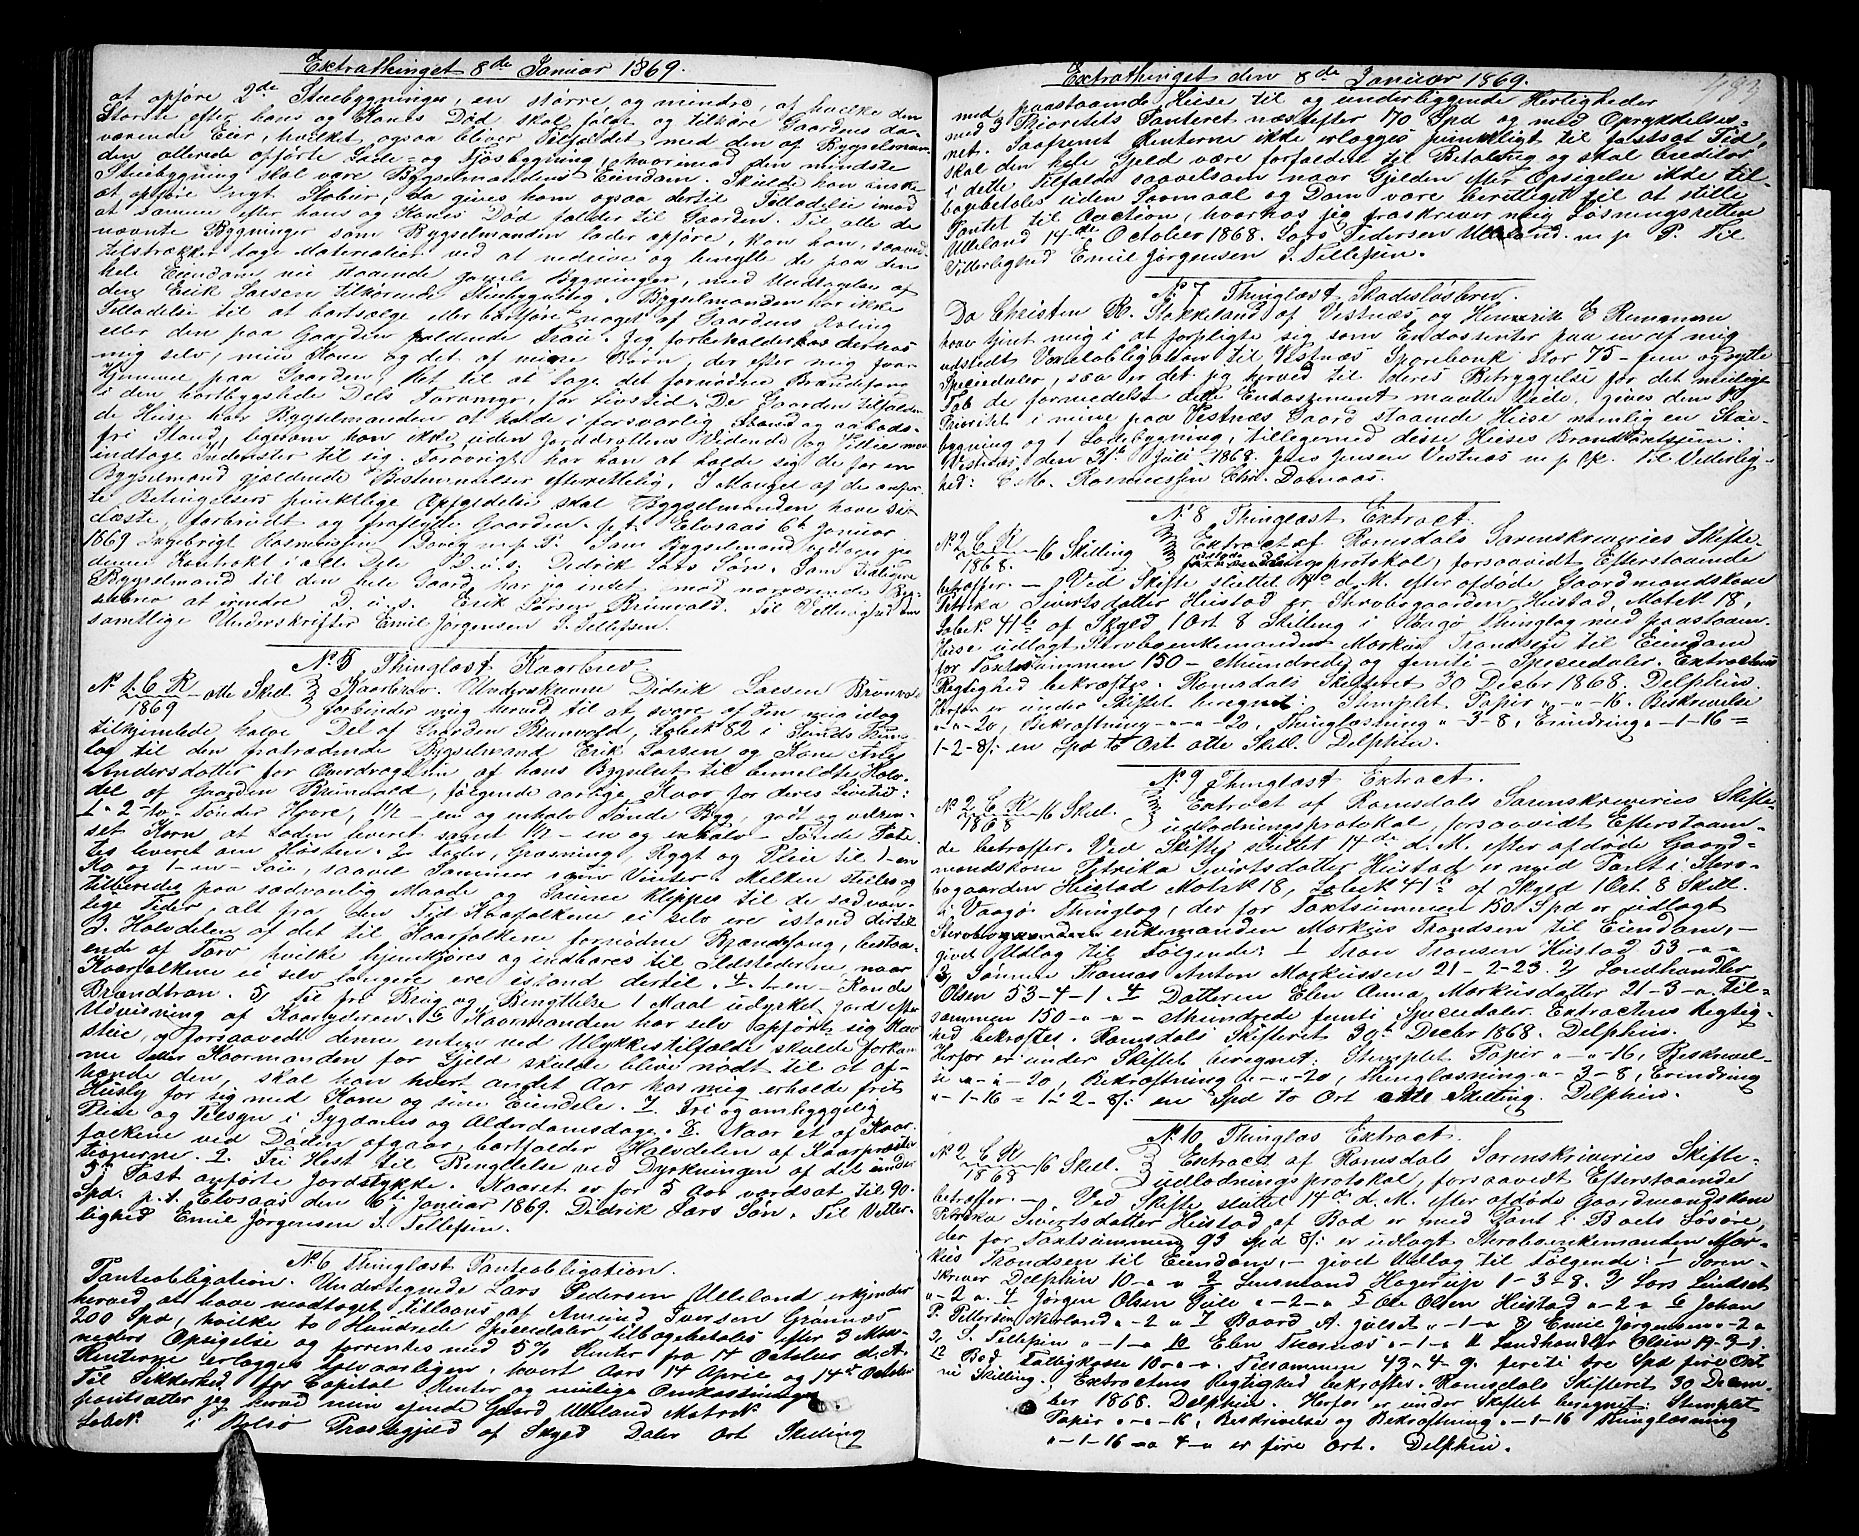 Extrathinget 8de Januar 1869.
at opføre 2de Stuebygninger, en større, og mindre, at hvilke den
Større efter hans og Kones Død skal følge og tilhøre Gaardens da-
værende Eier, hvilket ogsaa bliver Tilfældet med den af Bygselman-
den allerede opførte Lade- og Fjøsbygning, hvorimod den mindste
Stuebygning skal være Bygselmandens Eiendom. Skulde han ønske
at opføre nyt Stabur, da gives ham ogsaa dertil Tilladelse imod
at samme efter hans og Kones Død falder til Gaarden. Til alle de
nævnte Bygninger som Bygselmanden lader opføre, kan han, saavidt
tilstrækker tage Materialier ved at nedrive og benytte de paa den
hele Eiendom nu staaende gamle Bygninger, med Undtagelse af
den Erik Larsen tilhørende Stuebygning. Bygselmanden har ikke
Tilladelse til at bortsælge eller bortføre noget af Gaardens Avling
eller den paa Gaarden faldende Frau. Jeg forbeholder hos derhos
mig selv, min Kone og det af mine Børn, der efter mig faar
Hjemme paa Gaarden, Ret til at tage det fornødne Brændefang
i den bortbygslede Dels Torvmyr, for Livstid. De Gaarden tilfalden-
de Huse har Bygselmanden at holde i forsvarlig Stand og aabods-
fri Stand, ligesom han ikke uden Jorddrottens Vidende og Villie maa
indtage Inderster til sig. Forøvrigt har han at holde sig de for en
Bygselmand gjældende Bestemmelser efterrettelig. I Mangel af de anfør-
te Betingelsers punktlige Opfyldelse skal Bygselmanden have sit
Fæste forbrudt og fraflyde Gaarden. p.t. Elvsaas 6te Januar
1869 Ingebrigt Rasmussen Bovig m.p.P. Som Bygselmand vedtages
denne Kontrakt i alle Dele D.u.s. Didrik Lars Søn. Som tidligere
Bygselmand til den hele Gaard har jeg intet mod nærværende By-
selbrev at erindre D.u.s. Erik Larsen Brunvold. Til Vitterlighed om
samtlige Underskrifter Emil Jørgensen S. Tellefsen.
No 5 Thinglæst Kaarbrev.
No 1 C R 1869 otte Skill. Kaarbrev. Underskrevne Didrik Larsen Brunvold
forbinder mig herved til at svare af den mig idag
tilhjemlede halve Del af Gaarden Brunvold, Løbek 82 i Sunds Thing-
lag til den fratrædende Bygselmand Erik Larsen og Kone Ane
Andersdatter for Overdragelsen af hans Bygselret til bemeldte Halv-
del af Gaarden Brunvold, følgende aarlige Kaar for deres Livstid:
1. 2-to- Tønder Havre, 1½ - en og enhalv Tønde Byg, godt og velren-
set Korn, at Laden leveret samt 1½ - en og enhalv - Tønde Pote-
tes leveret om Høsten. 2. Foder, Græsning, Røgt og Pleie til 1-en
Ko og 1-en- Søie, saavel Sommer som Vinter. Melken stilles og
tilberedes paa sædvanlig Maade og Sauene klippes til de sædvan-
lige Tider, alt fra den Tid Kaarfolkene ei selv ere istand dertil
3. Halvdelen af det til Kaarfolkene fornødne Brændefang, bestaa-
ende af Torv hvilke hjemkjøres og indbæres til Ildstederne naar
Kaarfolkene ei selv længere ere istand dertil. 4. 1-en- Kande
Brændtran. 5, til fri Brug og Benyttelse 1 Maal udyrket Jord efter
Udvisning af Kaaryderen. 6. Kaarmanden har selv opført sig Kaar
stue, og forsaavidt denne enten ved Ulykkestilfælde skulde forkom-
me eller Kaarmanden for Gjeld skulde blive nødt til at af-
hænde den, skal han hvert andet Aar hos mig erholde frit
Husly for sig med Kone og sine Eiendele. 7. Fri og omhyggelig
Pleie og Tilsyn i Sygdoms og Alderdomsdage. 8. Naar et af Kaar-
folkene ved Døden afgaar, bortfalder Halvdelen af Kaarpræsta-
tionerne. 9. Fri Hest til Benyttelse ved Dyrkningen af det under
5te Post anførte Jordstykke. Kaaret er for 5 Aar værdsat til 90.
Spd. p.t. Elvsaas den 6te Januar 1869. Didrik Lars Søn. Til Vitter-
lighed Emil Jørgensen S. Tellefsen.
No 6 Thinglæst Panteobligation.
Panteobligation. Undertegnede Lars Pedersen Ulleland erkjender
herved at have modtaget tillaans af Amund Iversen Grønnæs
200 Spd, hvilke to Hundrede Speciedaler tilbagebetales efter 3 Maa-
neders Opsigelse og forrentes med 5% Renter fra 14 October d.A.
Renterne erlægges halvaarligen, hvert Aars 14 April og 14de October
Til Sikkerhed for Capital Renter og mulige Omkostninger
pantsætter jeg herved min eiende Gaard Ulleland Matrik
Løbek i Bolsø Præstegjæld af Skyld Daler Ort Skilling
Extrathinget den 8de Januar 1869.
483
med paastaaende Huse til og underliggende Herligheder
med 3 Prioritets Panteret næstefter 170 Spd og med Oprykkelses-
ret. Saafremt Renterne ikke erlægges punktligt til fastsat Tid,
skal den hele Gjeld være forfalden til Betaling og skal Creditor
i dette Tilfælde saavelsom naar Gjelden efter Opsigelse ikke til-
bagebetales uden Lovmaal og Dom være berettiget til at stille
Pantet til Auction, hvorhos jeg fraskriver mig Løsningsretten
Ulleland 14de October 1868. Lars Pedersen Ulleland. m.p.P. Til
Vitterlighed Emil Jørgensen S. Tellefsen.
No 7 Thinglæst Skadesløsbrev.
Da Christen K. Stokkeland af Vestnæs og Henrik E Remmem
have tjent mig i at forpligte sig som Endossenter paa en af mig
udstedt Vexelobligation til Vestnæs Sparebank stor 75 - fem og sytti
Speciedaler, saa er det jeg herved til deres Betryggelse for det mulige
Tab de formedelst dette Endossement maatte lide, gives dem 1ste
Prioritet i mine paa Vestnæs Gaard staaende Huse nemlig en Stue-
bygning og 1 Ladebygning, tilligemed desse Huses Brandkontsum.
Vestnæs den 31te Juli 1868. Jens Jensen Vestnæs m.p.P. Til Vederlig-
hed: C. M. Rasmussen Chr. Domaas.
No 8 Thinglæst Extract.
No 2 C R 1868. 16 Skilling Extract af Romsdals Sorenskriveries Skifte-
udlodningsprotokol, forsaavidt Efterstaaende
betræffer. - Ved Skifte sluttet 14de d.M. efter afdøde Gaardmandskone
Petrika Sivertsdatter Hustad er Strøbogaarden Hustad, Matrk 18,
Løbek. 41b af Skyld 1 Ort 8 Skilling i Vaagø Thinglag med paastaaen.
Huse udlagt Strøboenkemanden Markus Trondsen til Eiendom
for Taxtsummen 150 - Et Hundrede og femti - Speciedaler. Extractens
Rigtighed bekræftes. Romsdals Skifteret 30 Decbr 1868. Delphin.
Herfor er under Skiftet beregnet. Stemplet Papir "-"-16. Beskrivelse
"-"-20, Bekræftning "-"-20, Thinglæsning "-3-8, Erindring "-1-16 =
1-2-8/: en Spd to Ort otte Skill. Delphin.
No 9 Thinglæst Extract.
No 2 C R 1868 16 Skill. Extract af Romsdals Sorenskriveries Skifte-
udlodningsprotokol, forsaavidt Efterstaaen-
de betræffer. Ved Skifte sluttet 14de d.M. efter afdøde Gaard-
mandskone Petrika Sivertsdatter Hustad er med Pant i Strø-
bogaarden Hustad Matrk 18, Løbek 41b af Skyld 1 Ort 8 Skill.
i Vaagø Thinglag, der for Taxtsummen 150 Spd er udlagt
Strøboenkemanden Markus Trondsen til Eiendom, -
givet Udlag til Følgende: 1 Tron Tronsen Hustad 53 -"-"
2, Sønnen Tomas Anton Markussen 21-2-23. 3, Landhandler
Olsen 53-4-1. 4 Datteren Elen Anna Markusdatter 21-3-". Til-
sammen 150-"-" - Et Hundrede femti Speciedaler. Extractens Rigtig-
hed bekræftes. Romsdals Skifteret 30te Decbr 1868. Delphin.
Herfor er under Skiftet beregnet: Stemplet Papir "-"-16, Beskrivel-
se "-"-20, Bekræftning "-"-20, Thinglæsning "-3-8, Erindring
"-1-16 = 1-2-8/: en Spd to Ort otte Skilling. Delphin.
No 10 Thinglæs Extract.
No 2 C R 1868 16 Skill. Extract af Romsdals Sorenskriveries Skifte-
udlodningsprotokol, forsaavidt Efterstaaende
betræffer. - Ved Skifte sluttet 14de d.M. efter afdøde Gaardmandskone
Petrika Sivertsdatter Hustad af Bod er med Pant i Boets Løsøre,
der for Taxtsummen 93 Spd 8/: er udlagt Strøboenkemanden Mar-
kus Trondsen til Eiendom, - givet Udlag til Følgende: 1 Soren-
skriver Delphin 10-"-" 2 Lensmand Hagerup 1-3-8. 3, Lars Lindset
"-2-". 4 Jørgen Olsen Gule "-2-" 5 Ole Olsen Hustad "-2-" 6 Johan
P. Pettersen Nerland "-2-" 7 Baard A. Julset "-1-" 8, Emil Jørgensen "-2-"
9, S. Tellefsen "-1-" 10 Elen Tornæs "-1-" 11 Landhandler Olsen 19-3-1.
12 Bod Fattigkasse 10-"-". Tilsammen 43-4-9. firti tre Spd fire Ort
ni Skilling. Extractens Rigtighed bekræftes. Romsdals Skifteret 30 Decem-
ber 1868. Delphin. Herfor er under Skiftet beregnet: Stemplet
Papir "-"-16, Beskrivelse og Bekræftning "-1-16 Thinglæsning
"-1-16 = "-4-" er fire Ort. Delphin.